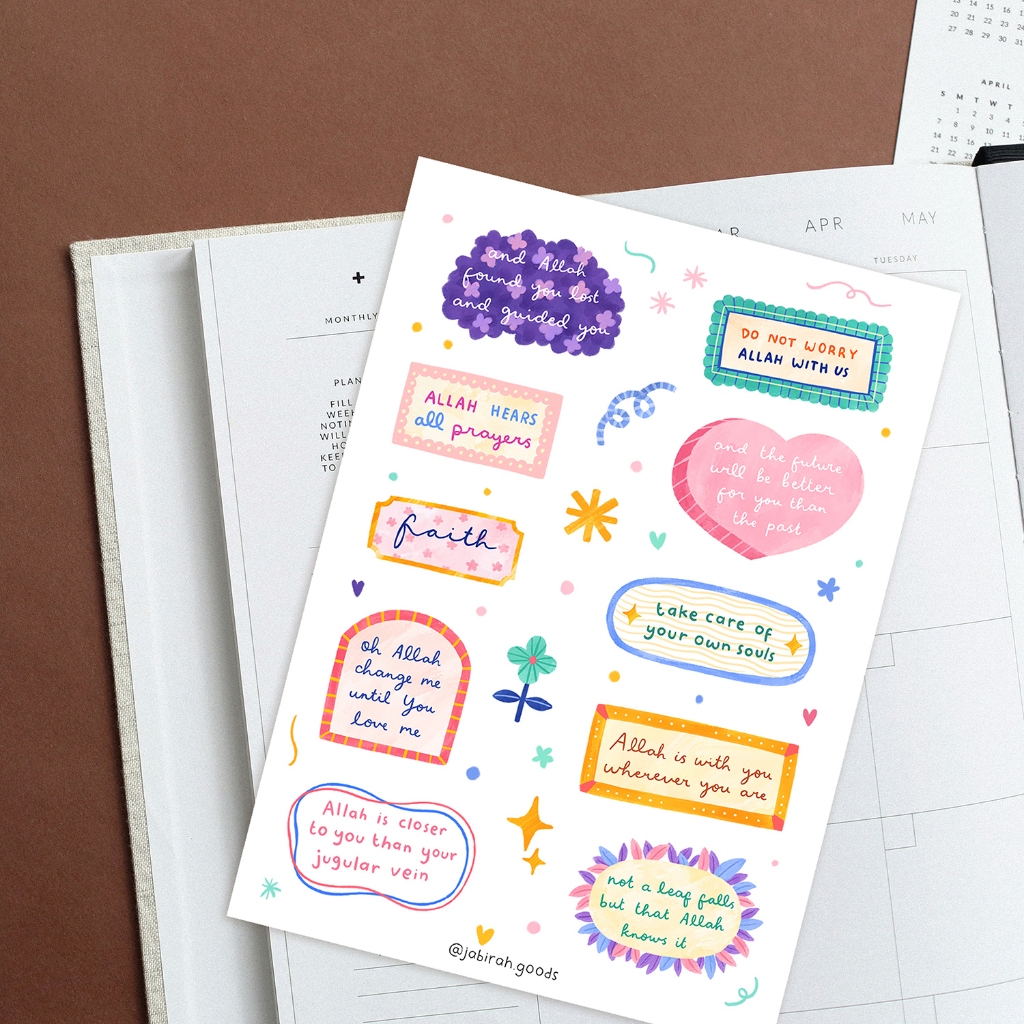 and Allah
found you lost
and guided you
DO NOT WORRY
ALLAH WITH US
ALLAH HEARS
all prayers
and the future
will be better
for you than
the past
faith
take care of
your own souls
oh Allah
change me
until You
love me
Allah is with you
wherever you are
Allah is closer
to you than your
jugular vein
not a leaf falls
but that Allah
knows it
@jabirah.goods
+
MONTHLY
PLAN
FILL
WEEK
NOTIN
WILL
HO
KEEP
TO
AR
APR
MAY
TUESDAY
13 14 15 16
20 21 22 23
27 28 29 30 31
APRIL
S M T W T
1 2 3 4
7 8 9 10 11
14 15 16 17
21 22 23